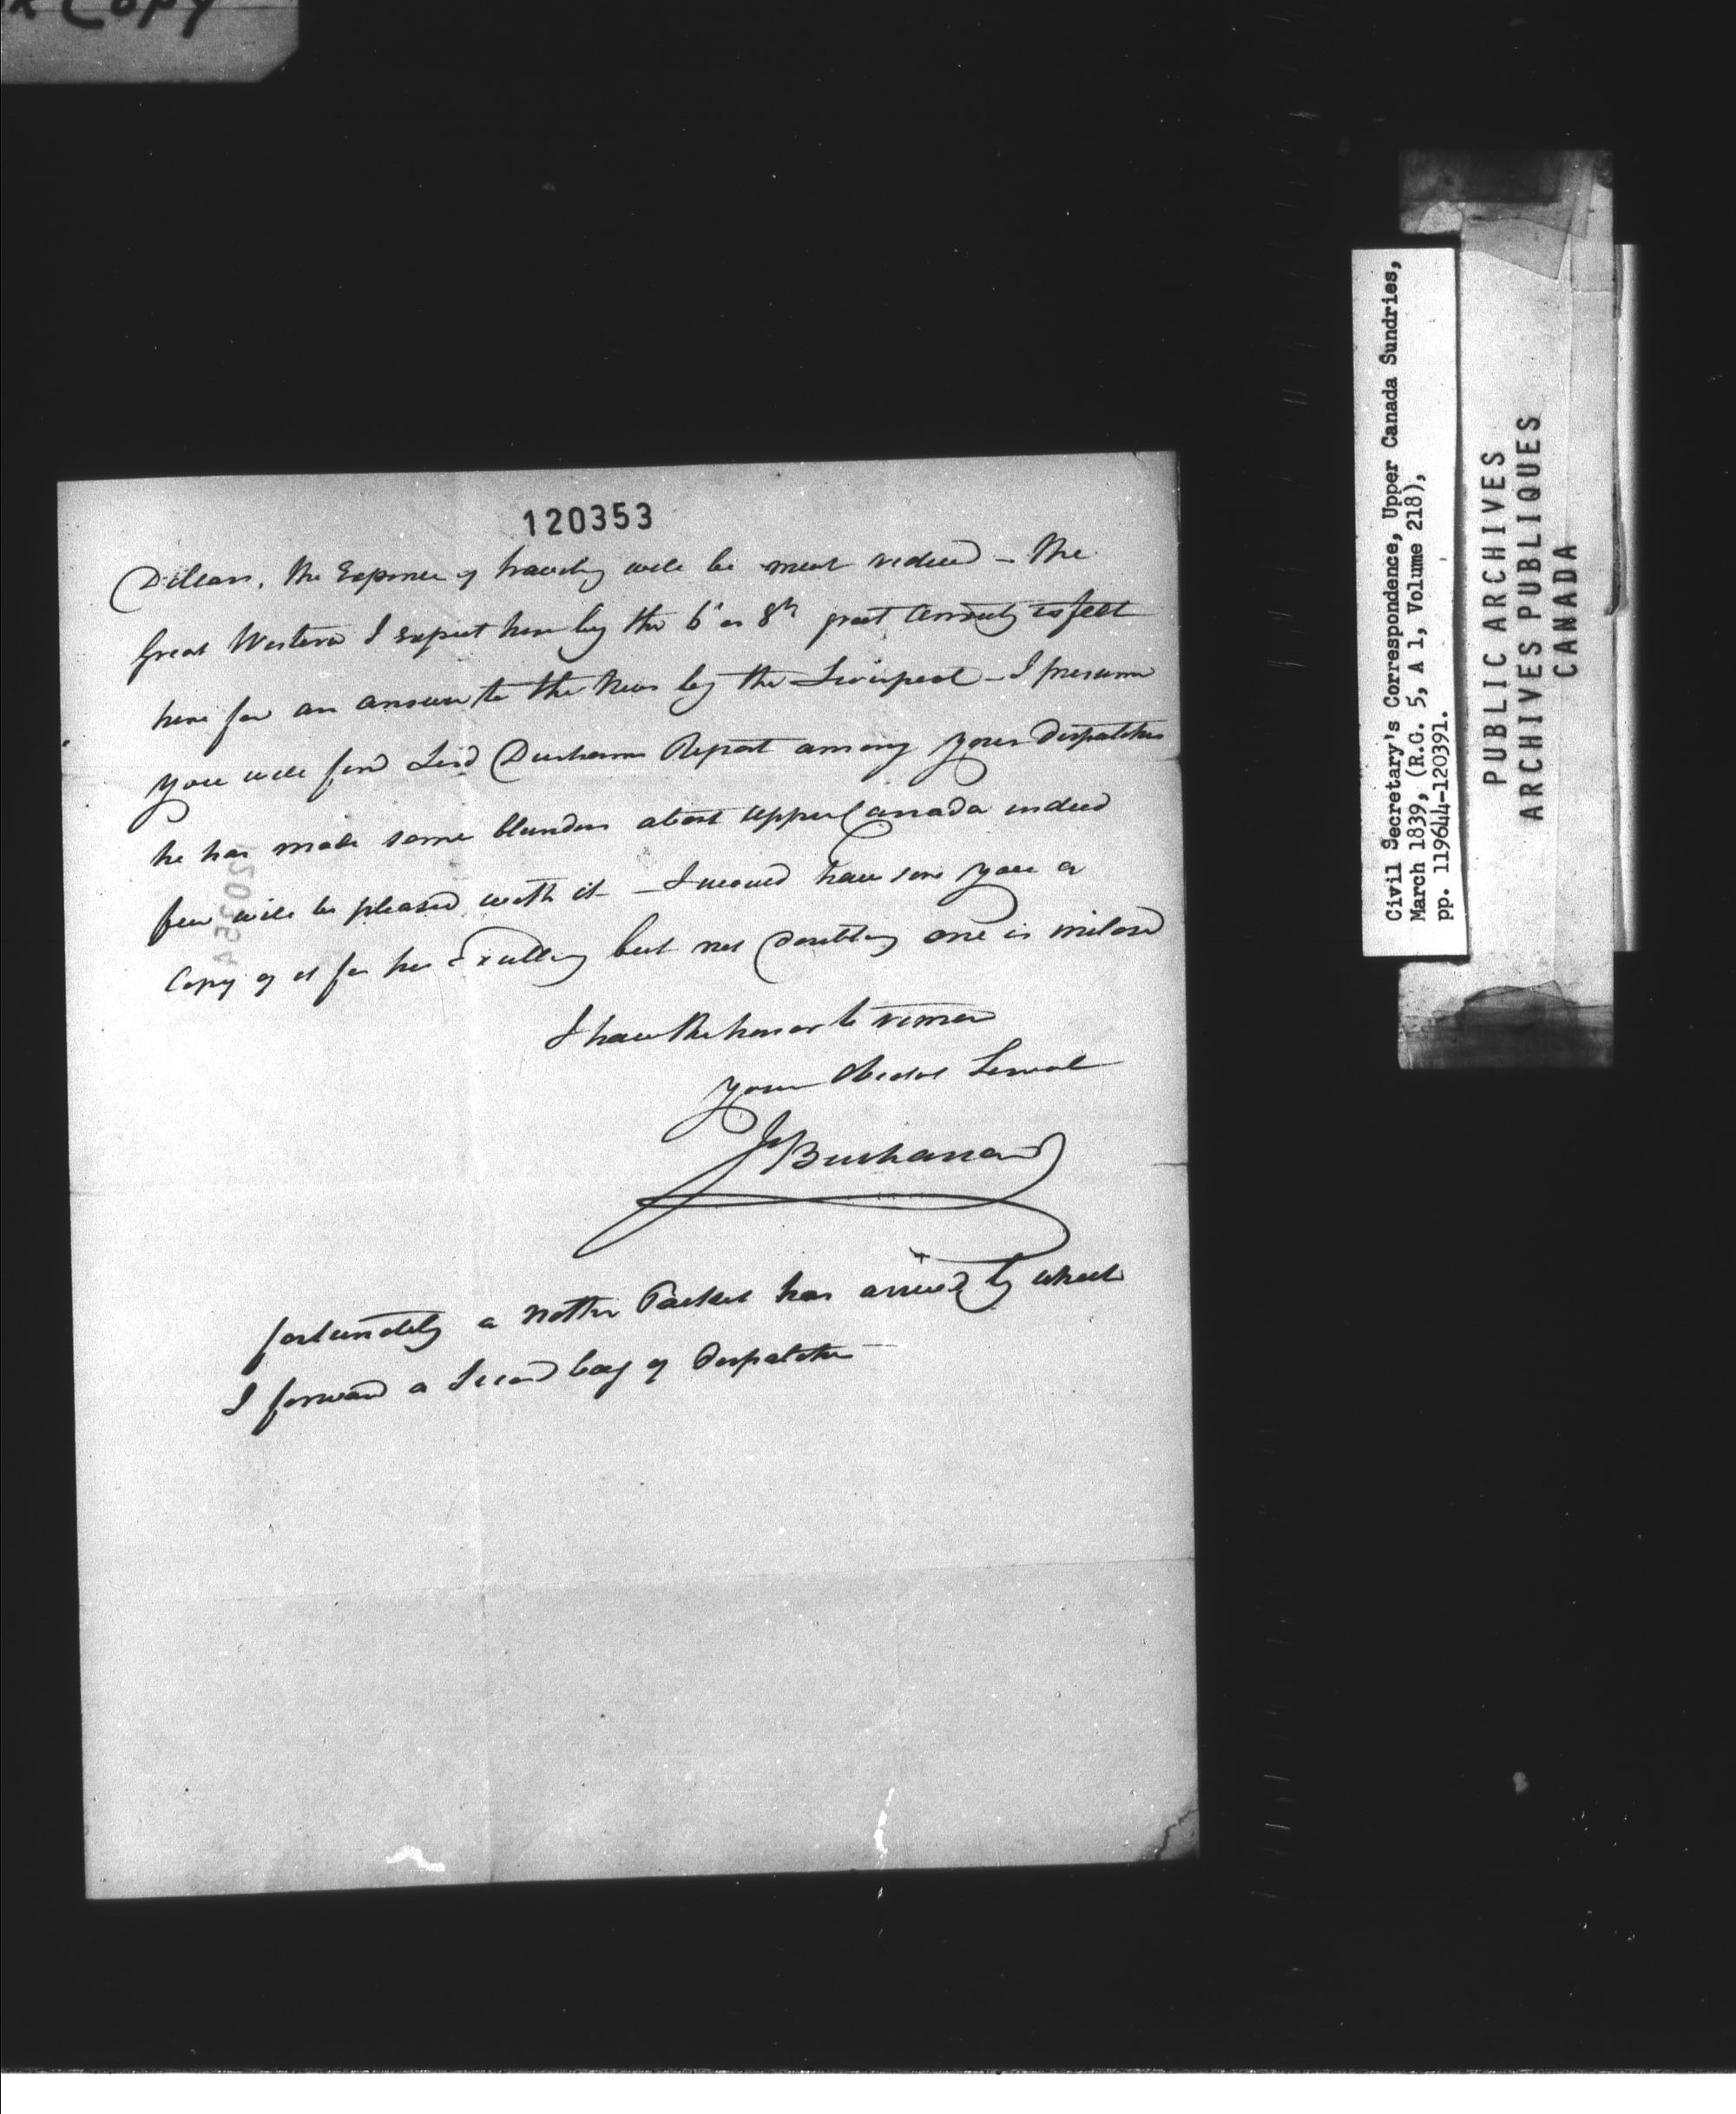 Copy
120353
the Expence of traveling will be much reduced - The
Great Western I expect here by the 6 or 8th great anxiety is felt
here for an answer to the News by the Liverpool - I presume
you will find Lord Durhams Report among your dispatches
he has made some blunders about Upper Canada indeed
few will be pleased with it - I would have sent you a
Copy of it for his Excellency but not doubting one is inclosed
I have the honor to remain
your Obedient Servant
J Buchanan
fortunately a nother Packet has arrived by which
I forward a Second bag of dispatches
Civil Secretary's Correspondence, Upper Canada Sundries,
March 1839, (R.G. 5, A 1, Volume 218),
pp. 119644-120391.
PUBLIC ARCHIVES
ARCHIVES PUBLIQUES
CANADA